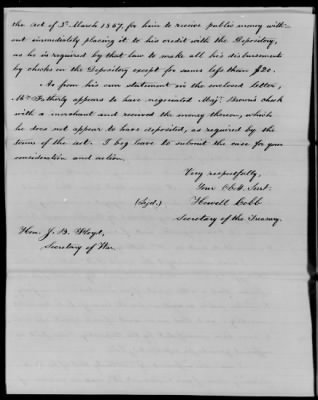 the act of 3d March 1857, for him to receive public money with-
out immediately placing it to his credit with the Depository,
as he is required by that law to make all his disbursements
by checks on the Depository except for sums less than $20.
As from his own statement in the enclosed letter,
Mr. Fetherly appears to have negociated Maj. Brown's check
with a merchant and received the money thereon, which
he does not appear to have deposited, as required by the
terms of the act. I beg leave to submit the case for your
consideration and action.
Very respectfully,
Your Obt. Servt.
(Sgd.) Howell Cobb
Secretary of the Treasury.
Hon. J. B. Floyd,
Secretary of War.